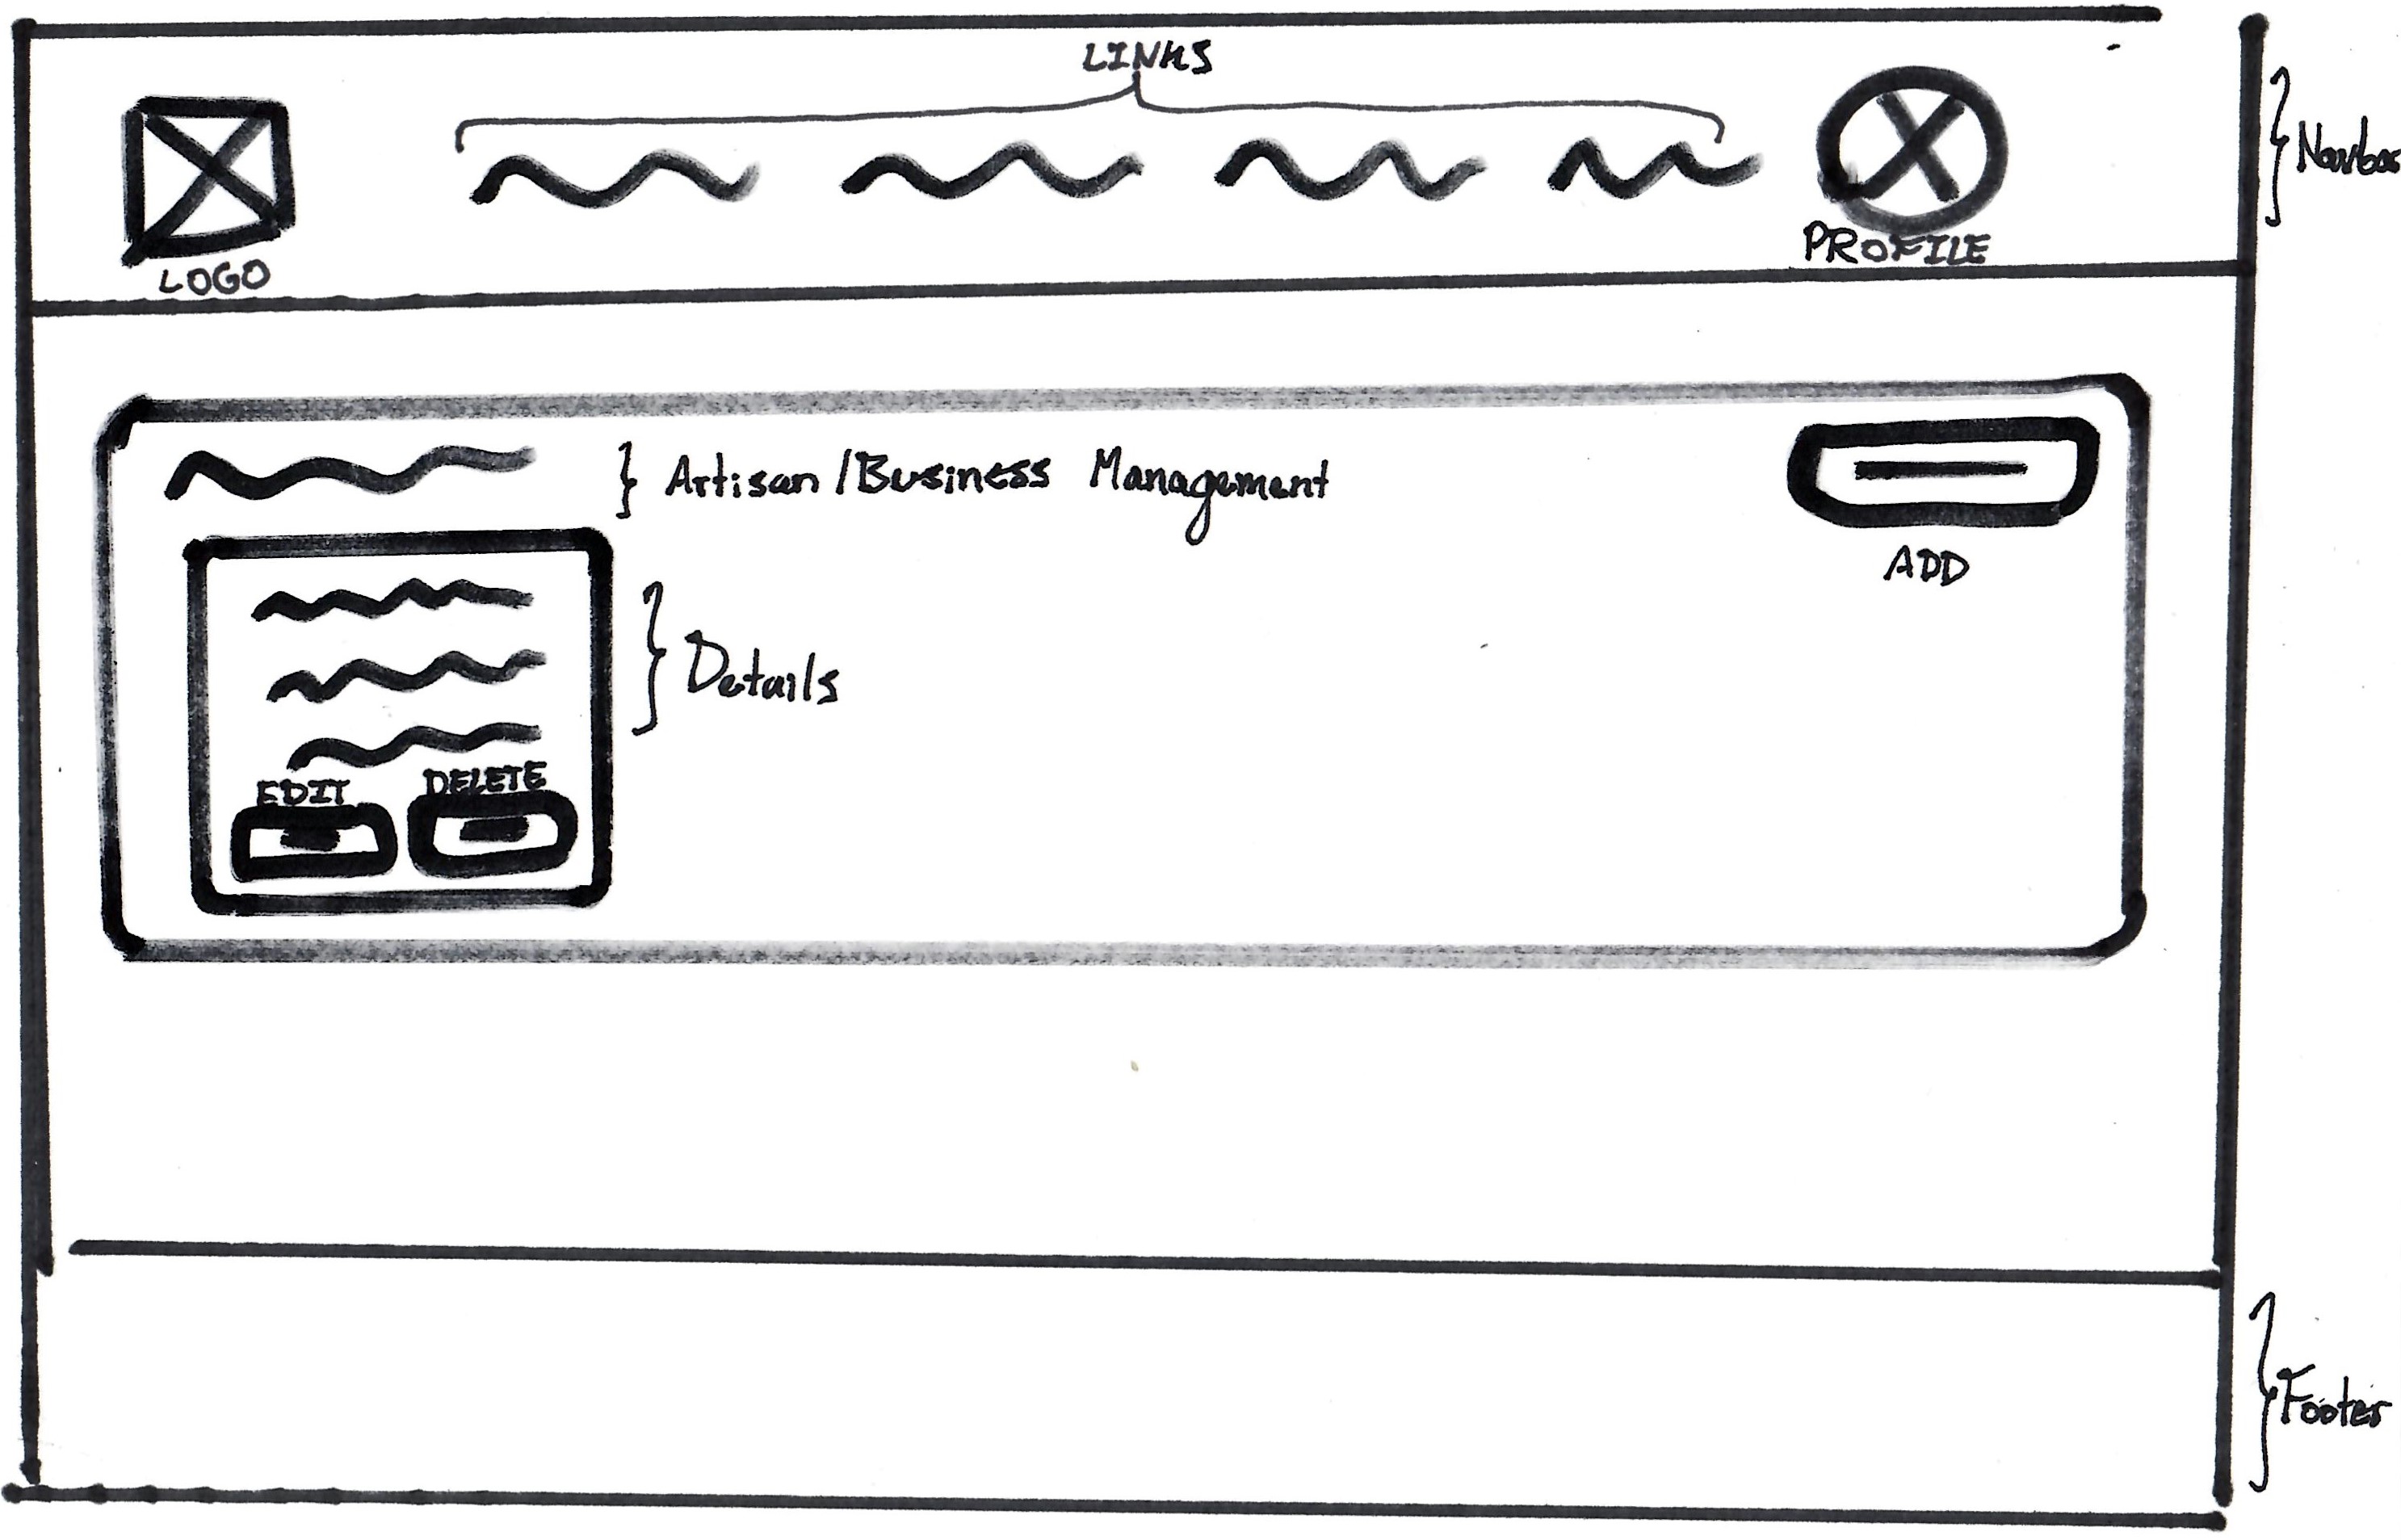 LINKS
LOGO
PROFILE
Navbar
Artisan/Business Management
ADD
Details
EDIT
DELETE
Footer